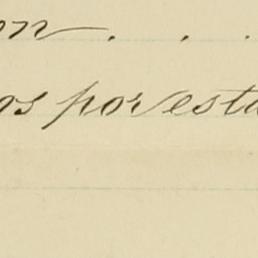 on . . .
os por esta